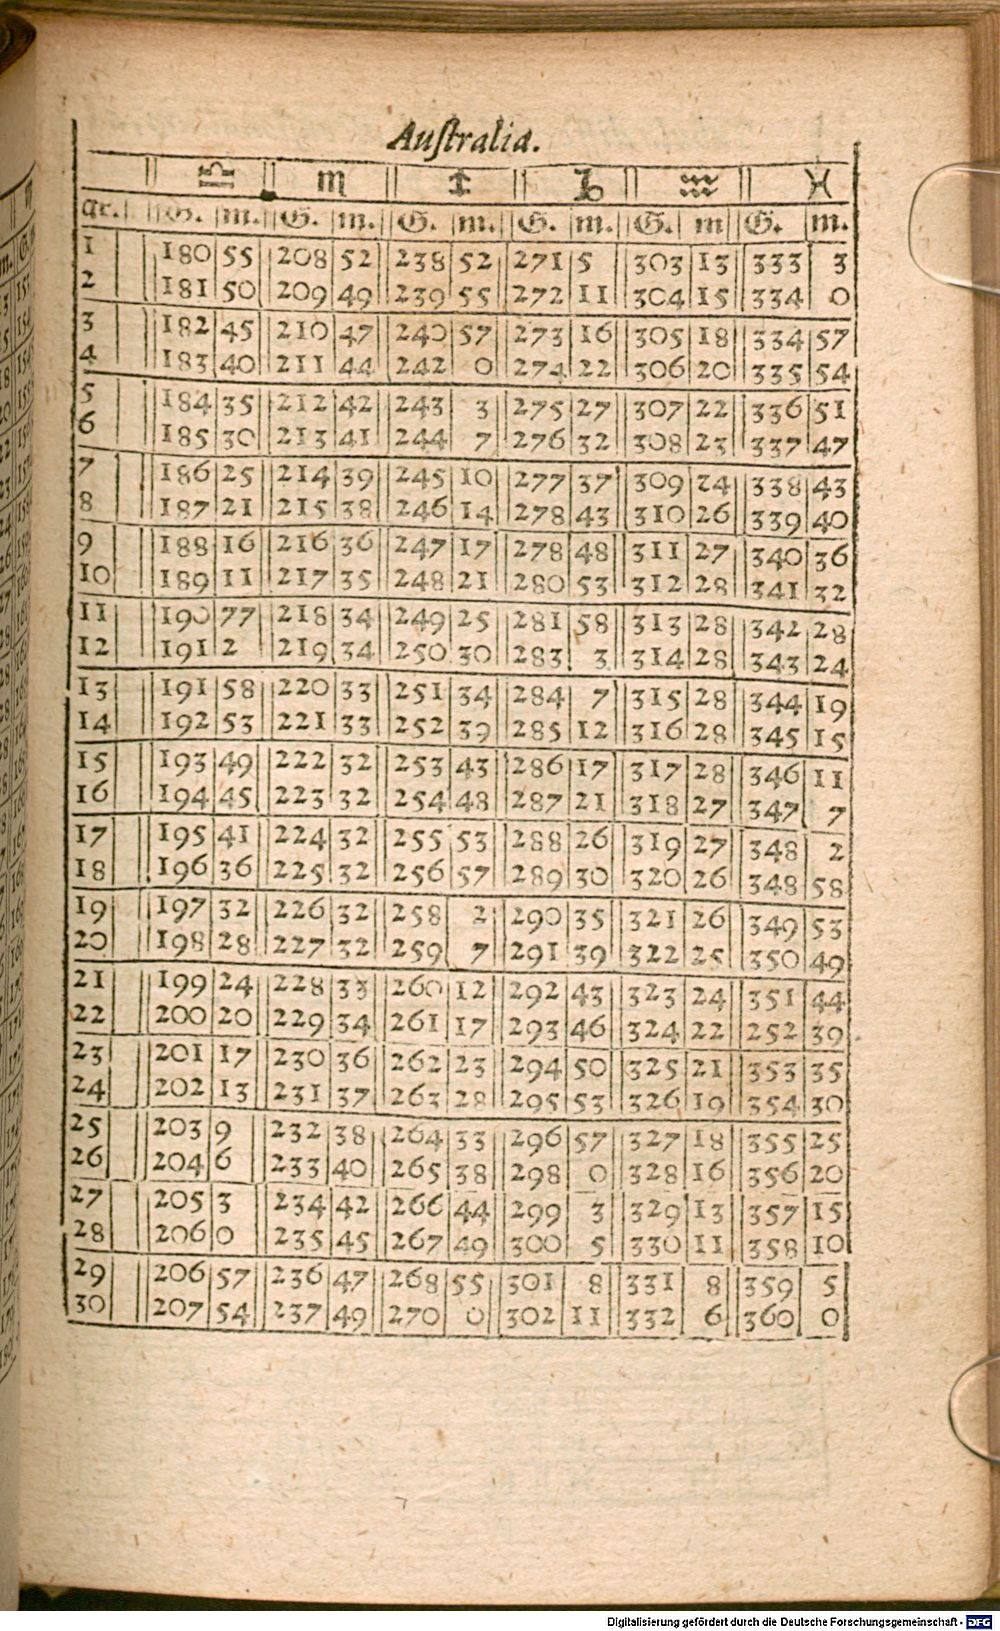 Auſtralia.
♎ ♏ ♐ ♑ ♒ ♓
gr. G. m. G. m. G. m. G. m. G. m G. m.
1 180 55 208 52 238 52 271 5 303 13 333 3
2 181 50 209 49 239 55 272 11 304 15 334 0
3 182 45 210 47 240 57 273 16 305 18 334 57
4 183 40 211 44 242 0 274 22 306 20 335 54
5 184 35 212 42 243 3 275 27 307 22 336 51
6 185 30 213 41 244 7 276 32 308 23 337 47
7 186 25 214 39 245 10 277 37 309 24 338 43
8 187 21 215 38 246 14 278 43 310 26 339 40
9 188 16 216 36 247 17 278 48 311 27 340 36
10 189 11 217 35 248 21 280 53 312 28 341 32
11 190 77 218 34 249 25 281 58 313 28 342 28
12 191 2 219 34 250 30 283 3 314 28 343 24
13 191 58 220 33 251 34 284 7 315 28 344 19
14 192 53 221 33 252 39 285 12 316 28 345 15
15 193 49 222 32 253 43 286 17 317 28 346 11
16 194 45 223 32 254 48 287 21 318 27 347 7
17 195 41 224 32 255 53 288 26 319 27 348 2
18 196 36 225 32 256 57 289 30 320 26 348 58
19 197 32 226 32 258 2 290 35 321 26 349 53
20 198 28 227 32 259 7 291 39 322 25 350 49
21 199 24 228 33 260 12 292 43 323 24 351 44
22 200 20 229 34 261 17 293 46 324 22 252 39
23 201 17 230 36 262 23 294 50 325 21 353 35
24 202 13 231 37 263 28 295 53 326 19 354 30
25 203 9 232 38 264 33 296 57 327 18 355 25
26 204 6 233 40 265 38 298 0 328 16 356 20
27 205 3 234 42 266 44 299 3 329 13 357 15
28 206 0 235 45 267 49 300 5 330 11 358 10
29 206 57 236 47 268 55 301 8 331 8 359 5
30 207 54 237 49 270 0 302 11 332 6 360 0
Digitalisierung gefördert durch die Deutsche Forschungsgemeinschaft - DFG